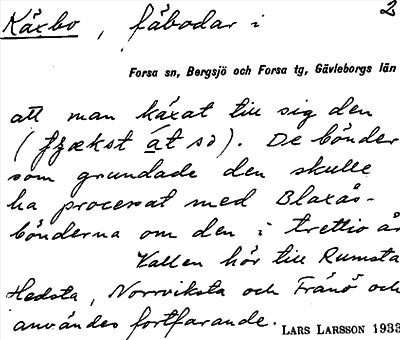 Käxbo, fäbodar i 2
Forsa sn, Bergsjö och Forsa tg, Gävleborgs län
att man käxat till sig den
( át so). De bönder
som grundade den skulle
ha processat med Blaxås-
bönderna om den i trettio år
Vallen hör till Rumsta
Hedsta, Norrviksta och Frånö och
användes fortfarande. LARS LARSSON 1933